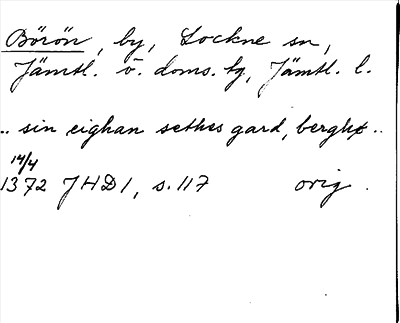 Börön, by, Lockne sn,
Jämtl. ö. doms. tg, Jämtl. l.
.. sin eighan sethes gard, berghx ..
14/4
1372 JHD1, s. 117 orig.